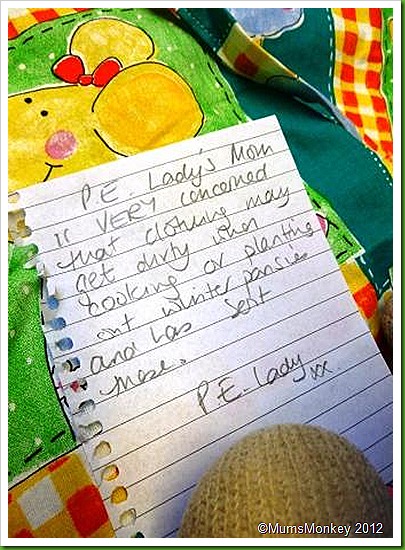 P.E. Lady's Mom
is VERY concerned
that clothing may
get dirty when
cooking or planting
out winter pansies
and has sent
these.
P.E. Lady xx
©MumsMonkey 2012